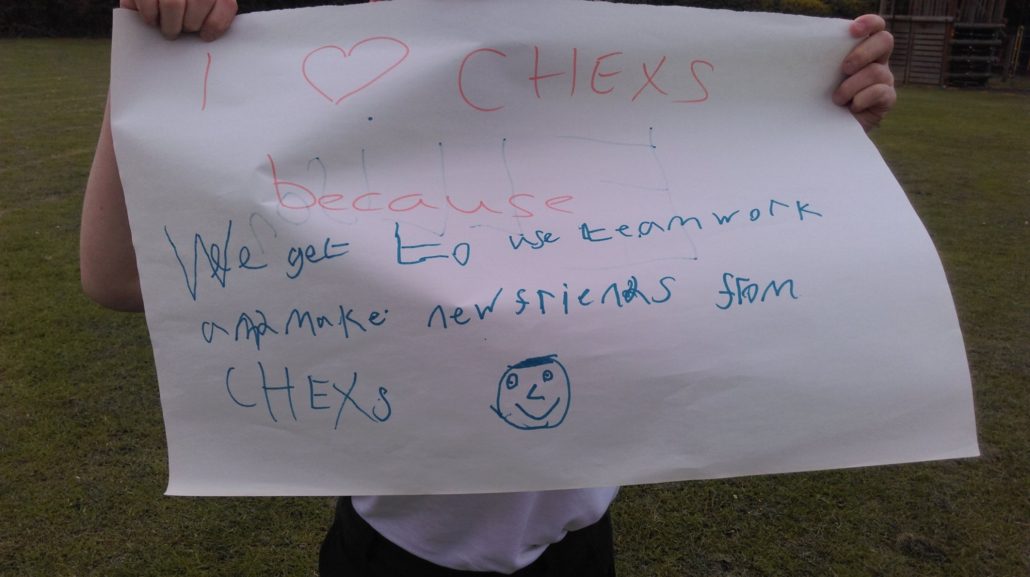 I ♡ CHEXS
because
We get to use teamwork
and make new friends from
CHEXs